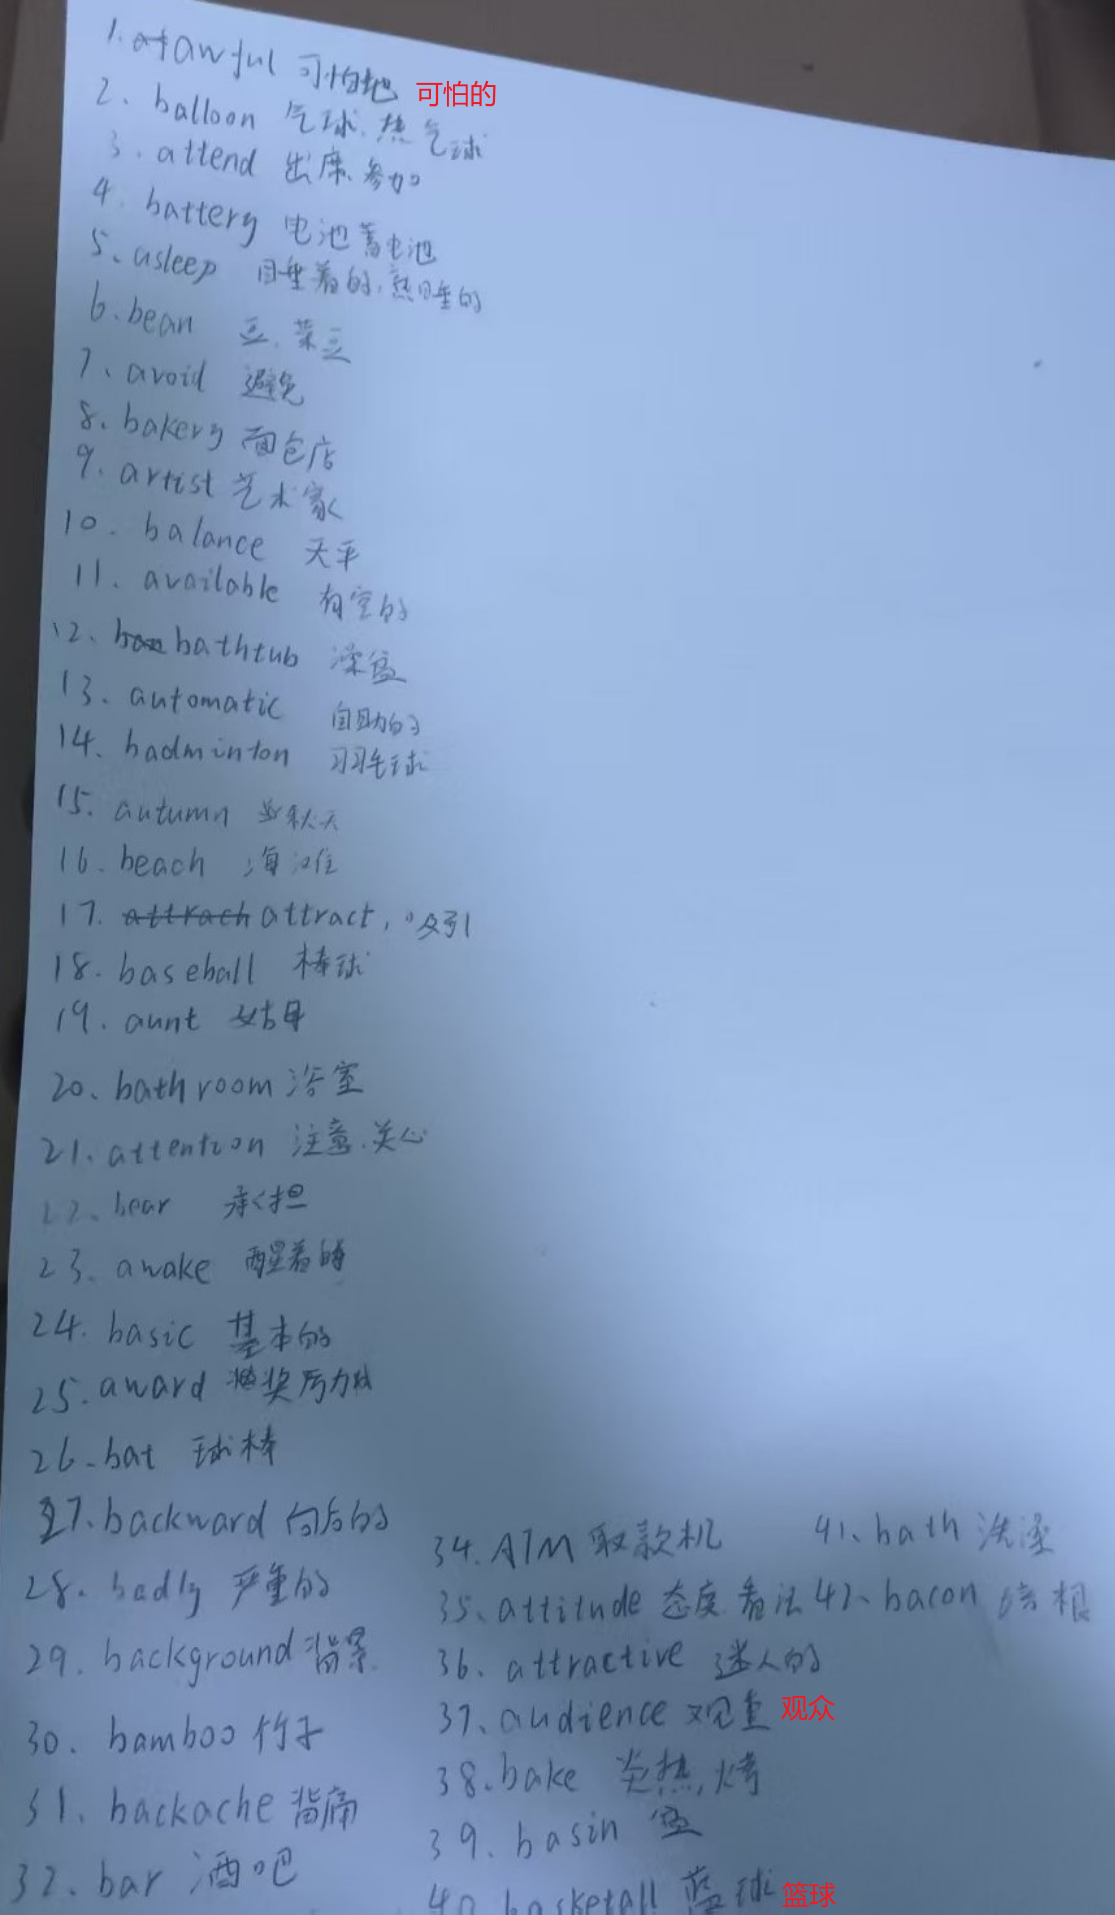 1. awful 可怕地 可怕的
2. balloon 气球、热气球
3. attend 出席、参加
4. battery 电池 蓄电池
5. asleep 睡着的，熟睡的
6. bean 豆、菜豆
7. avoid 避免
8. bakery 面包店
9. artist 艺术家
10. balance 天平
11. available 有空的
12. bathtub 澡盆
13. automatic 自助的
14. badminton 羽毛球
15. autumn 秋天
16. beach 海滩
17. attrach attract, 吸引
18. baseball 棒球
19. aunt 姑母
20. bathroom 浴室
21. attention 注意、关心
22. bear 承担
23. awake 醒着的
24. basic 基本的
25. award 奖励
26. bat 球棒
27. backward 向后的
28. badly 严重的
29. background 背景
30. bamboo 竹子
31. backache 背痛
32. bar 酒吧
34. ATM 取款机
35. attitude 态度 看法
36. attractive 迷人的
37. audience 观 观众
38. bake 炎热，烤
39. basin 盆
40. basketall 蓝球 篮球
41. bath 洗澡
42. bacon 培根